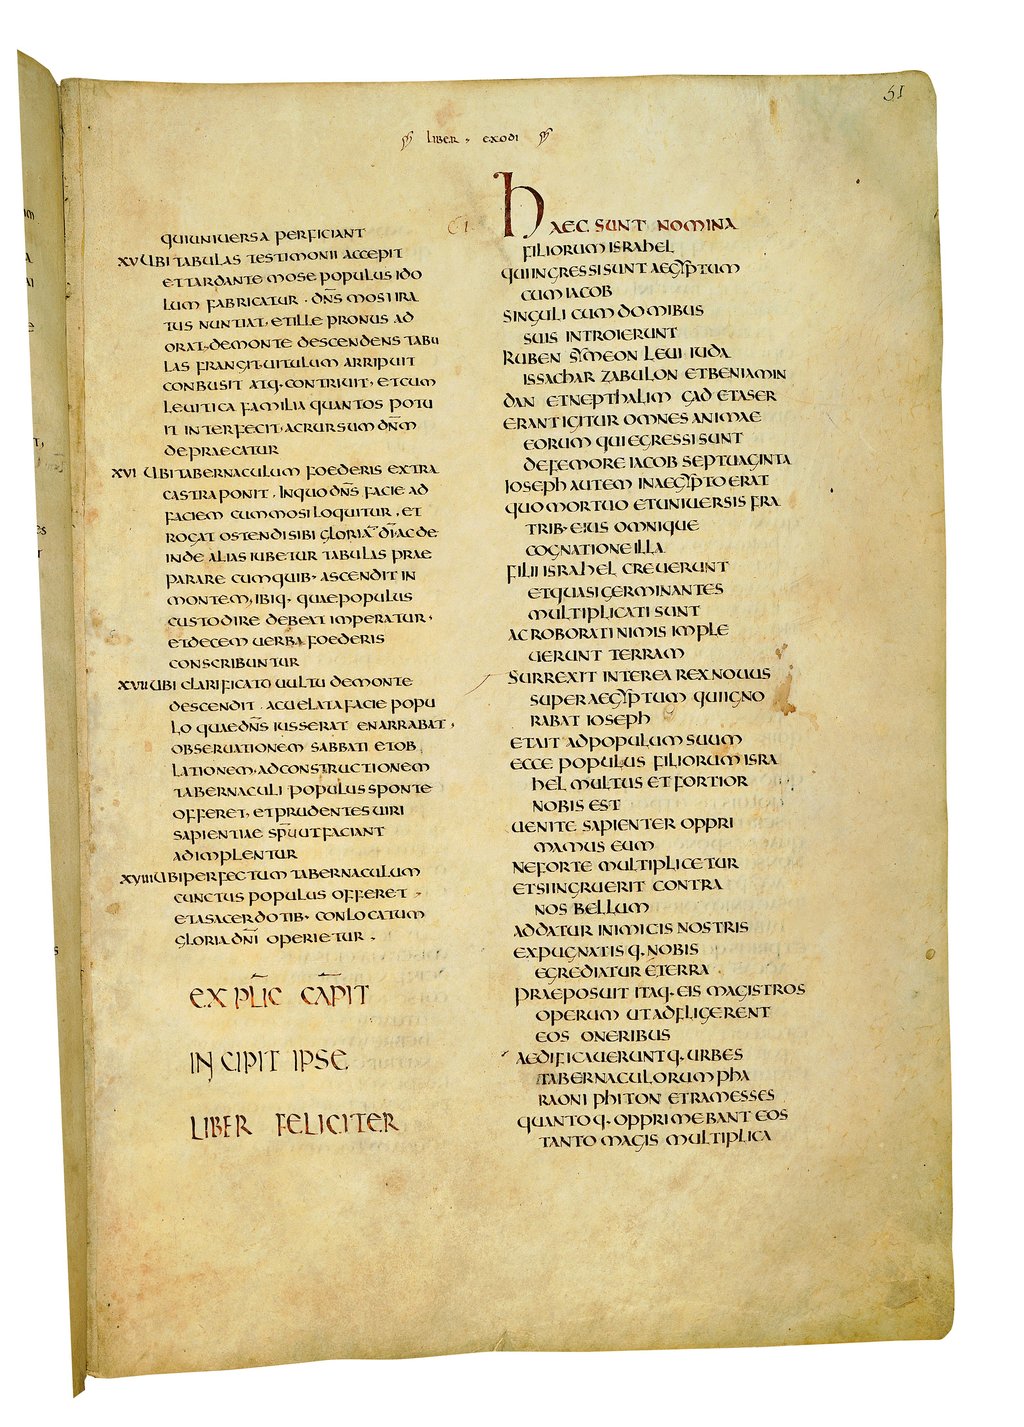 51
liber · exodi
qui universa perficiant
XV Ubi tabulas testimonii accepit
et tardante mose populus ido
lum fabricatur · dn̄s mosi ira
tus nuntiat, et ille pronus ad
orat, de monte descendens tabu
las frangit, vitulum arripuit
conbusit atq· contrivit, et cum
levitica familia quantos potu
it interfecit, ac rursum dn̄m
depraecatur
XVI Ubi tabernaculum foederis extra
castra ponit, in quo dn̄s facie ad
faciem cum mosi loquitur, et
rogat ostendi sibi gloriā dī, ac de
inde alias iubetur tabulas prae
parare cum quib· ascendit in
montem, ibiq· quae populus
custodire debeat imperatur,
et decem verba foederis
conscribuntur
XVII Ubi clarificato vultu de monte
descendit, ac velata facie popu
lo quae dn̄s iusserat enarrabat,
observationem sabbati et ob
lationem, ad constructionem
tabernaculi populus sponte
offeret, et prudentes viri
sapientiae sp̄u ut faciant
adimplentur
XVIII Ubi perfectum tabernaculum
cunctus populus offeret
et a sacerdotib· conlocatum
gloria dn̄i operietur ·
EXPLIC CAPIT
INCIPIT IPSE
LIBER FELICITER
C I
Haec sunt nomina
filiorum israhel
qui ingressi sunt aegyptum
cum iacob
singuli cum domibus
suis introierunt
Ruben symeon levi iuda
issachar zabulon et beniamin
dan et nepthalim gad et aser
erant igitur omnes animae
eorum qui egressi sunt
de femore iacob septuaginta
Ioseph autem in aegypto erat
quo mortuo et universis fra
trib· eius omnique
cognatione illa
filii israhel creverunt
et quasi germinantes
multiplicati sunt
ac roborati nimis imple
verunt terram
Surrexit interea rex novus
super aegyptum qui igno
rabat ioseph
et ait ad populum suum
ecce populus filiorum isra
hel multus et fortior
nobis est
venite sapienter oppri
mamus eum
ne forte multiplicetur
et si ingruerit contra
nos bellum
addatur inimicis nostris
expugnatisq· nobis
egrediatur e terra
praeposuit itaq· eis magistros
operum ut adfligerent
eos oneribus
aedificaveruntq· urbes
tabernaculorum pha
raoni phiton et ramesses
quantoq· opprimebant eos
tanto magis multiplica